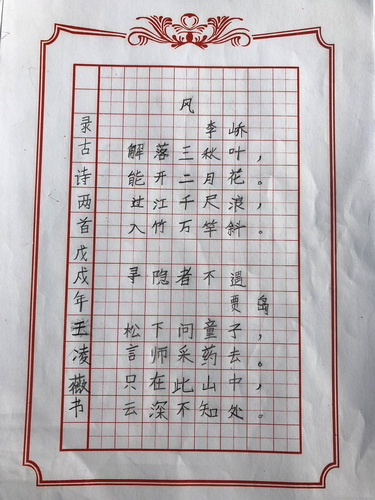 风
李峤
解落三秋叶，
能开二月花。
过江千尺浪，
入竹万竿斜。
寻隐者不遇
贾岛
松下问童子，
言师采药去。
只在此山中，
云深不知处。
录古诗两首戊戌年王凌薇书